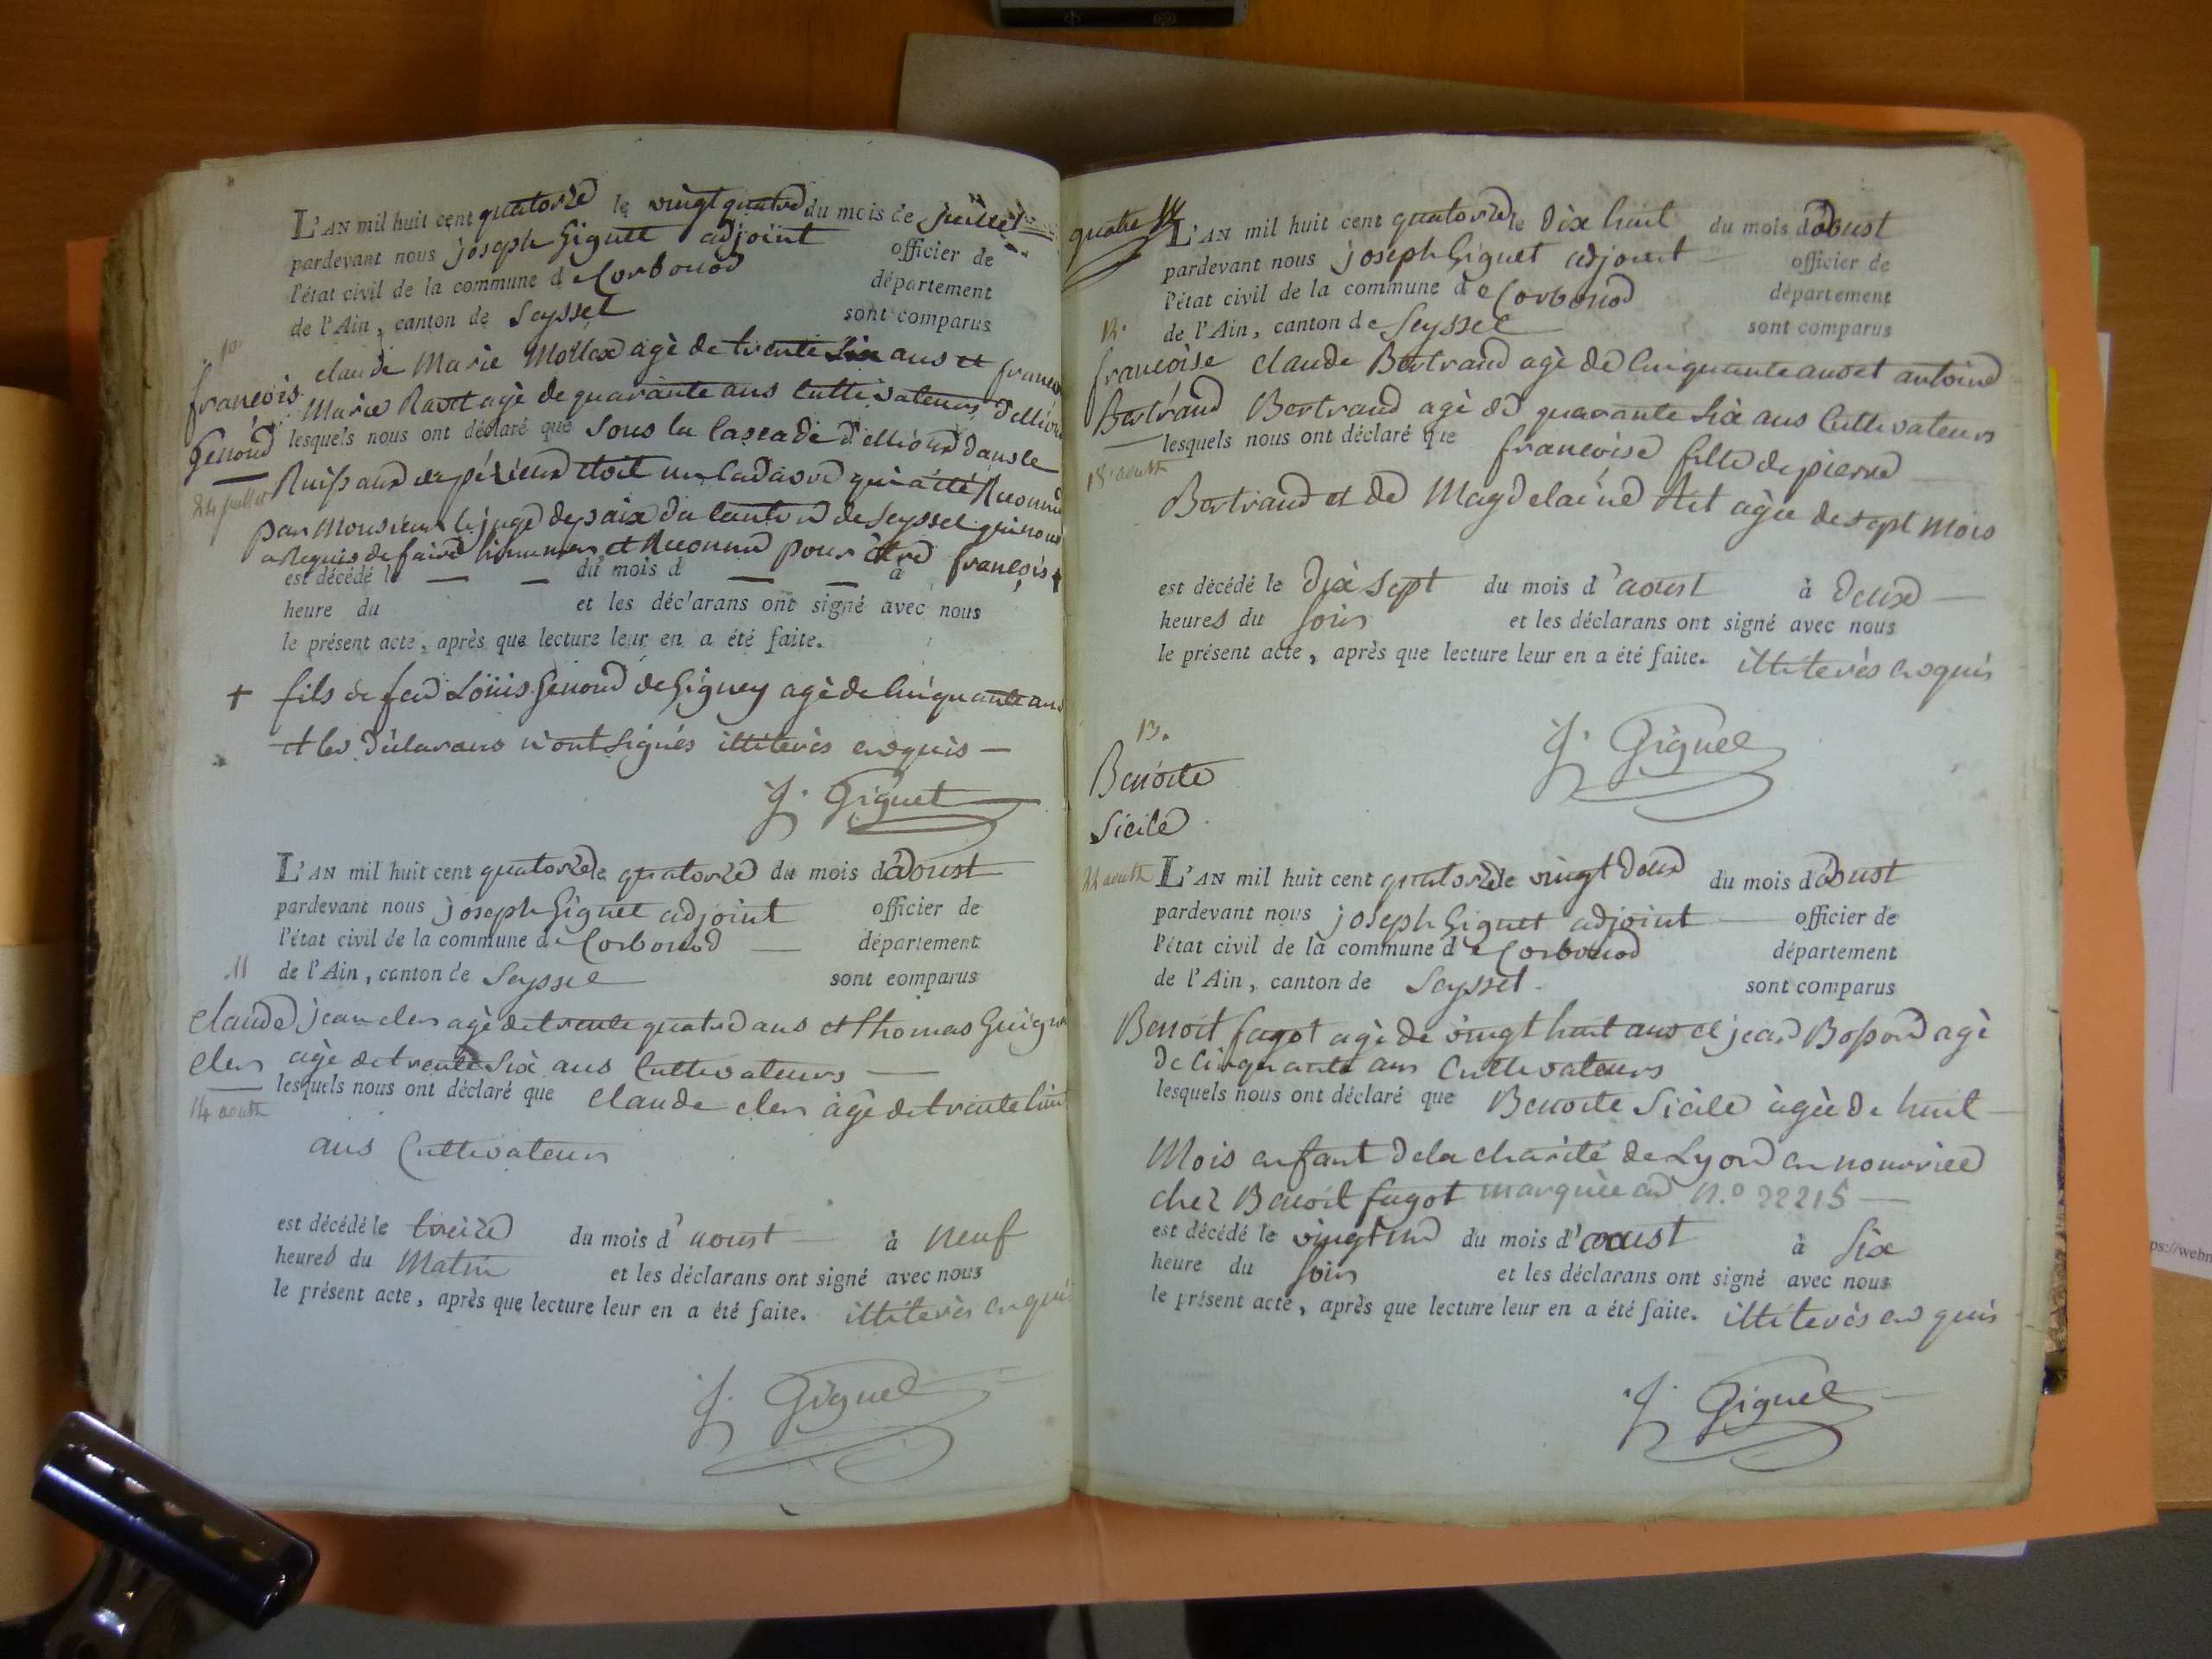 L'AN mil huit cent quatorze le vingt quatre du mois de juillet
pardevant nous joseph Giguet adjoint officier de
l'état civil de la commune de Corbonod département
de l'Ain, canton de Seyssel sont comparus
10
claude Marie Mollex agè de trente six ans et francois
françois Marie Ravit agè de quarante ans Cultivateurs
Genoud lesquels nous ont déclaré que sous la Cascade dans le
24 juillet Ruisseau etoit un Cadavre qui a été Reconnu
par Monsieur le juge de paix du Canton de Seyssel qui nous
a Requis de faire hinumer et Reconnu pour être françois +
est décédé l — — du mois d — — à
heure du et les déclarans ont signé avec nous
le présent acte, après que lecture leur en a été faite.
+ fils de feu Loüis Genoud de Gigney agè de Cinquante ans
et les déclarans n'ont signés illitèrès enquis —
J. Giguet
L'AN mil huit cent quatorze le quatorze du mois d'aoust
pardevant nous joseph Giguet adjoint officier de
l'état civil de la commune de Corbonod — département
11 de l'Ain, canton de Seyssel sont comparus
Claude jean cler agè de trente quatre ans et thomas
Cler agè de trente six ans Cultivateurs —
lesquels nous ont déclaré que claude cler àgè de trente
14 aoust
ans Cultivateur
est décédé le treize du mois d'aoust à neuf
heures du Matin et les déclarans ont signé avec nous
le présent acte, après que lecture leur en a été faite. illitèrès enquis
J. Giguet
quatre 14
L'AN mil huit cent quatorze le dix huit du mois d'aoust
pardevant nous joseph Giguet adjoint officier de
l'état civil de la commune de Corbonod département
12. de l'Ain, canton de Seyssel sont comparus
francoise claude Bertrand agè de Cinquante ans et antoine
Bertrand Bertrand agè de quarante six ans Cultivateurs
lesquels nous ont déclaré que francoise fille de pierre
18 aoust
Bertrand et de Magdelaine agèe de sept mois
est décédé le dix sept du mois d'aoust à deux —
heures du soir et les déclarans ont signé avec nous
le présent acte, après que lecture leur en a été faite. illitèrès enquis
J. Giguet
13.
Benoite
Sicile
22 aoust L'AN mil huit cent quatorze le vingt deux du mois d'aoust
pardevant nous joseph Giguet adjoint officier de
l'état civil de la commune de Corbonod département
de l'Ain, canton de Seyssel sont comparus
Benoit fagot agè de vingt huit ans et jean Bossond agè
de Cinquante ans Cultivateurs
lesquels nous ont déclaré que Benoite Sicile àgèe de huit
Mois enfant de la charité de Lyon en nourrice
chez Benoit fagot marquèe au N.º 22215 —
est décédé le vingt un du mois d'aoust à six
heure du soir et les déclarans ont signé avec nous
le présent acte, après que lecture leur en a été faite. illitèrès enquis
J. Giguet